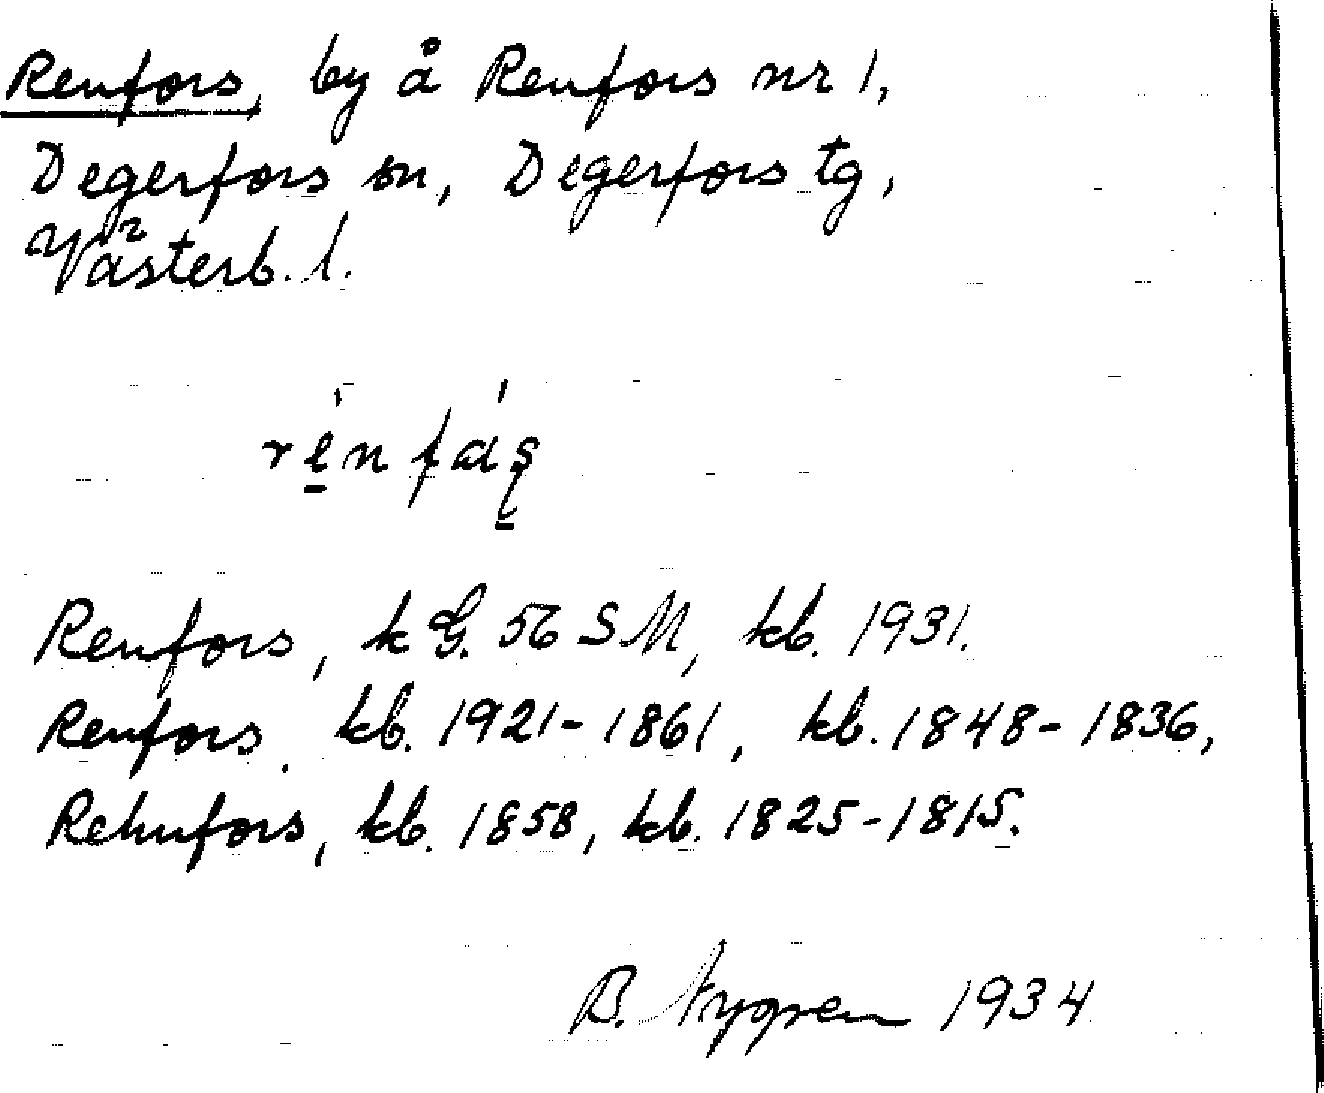 Renfors, by å Renfors nr 1,
Degerfors sn, Degerfors tg,
Västerb. l.
Renfors, k G. 56 SM, kb. 1931.
Renfors, kb. 1921-1861, kb. 1848-1836,
Rehnfors, kb. 1858, kb. 1825-1815.
B. Nygren 1934